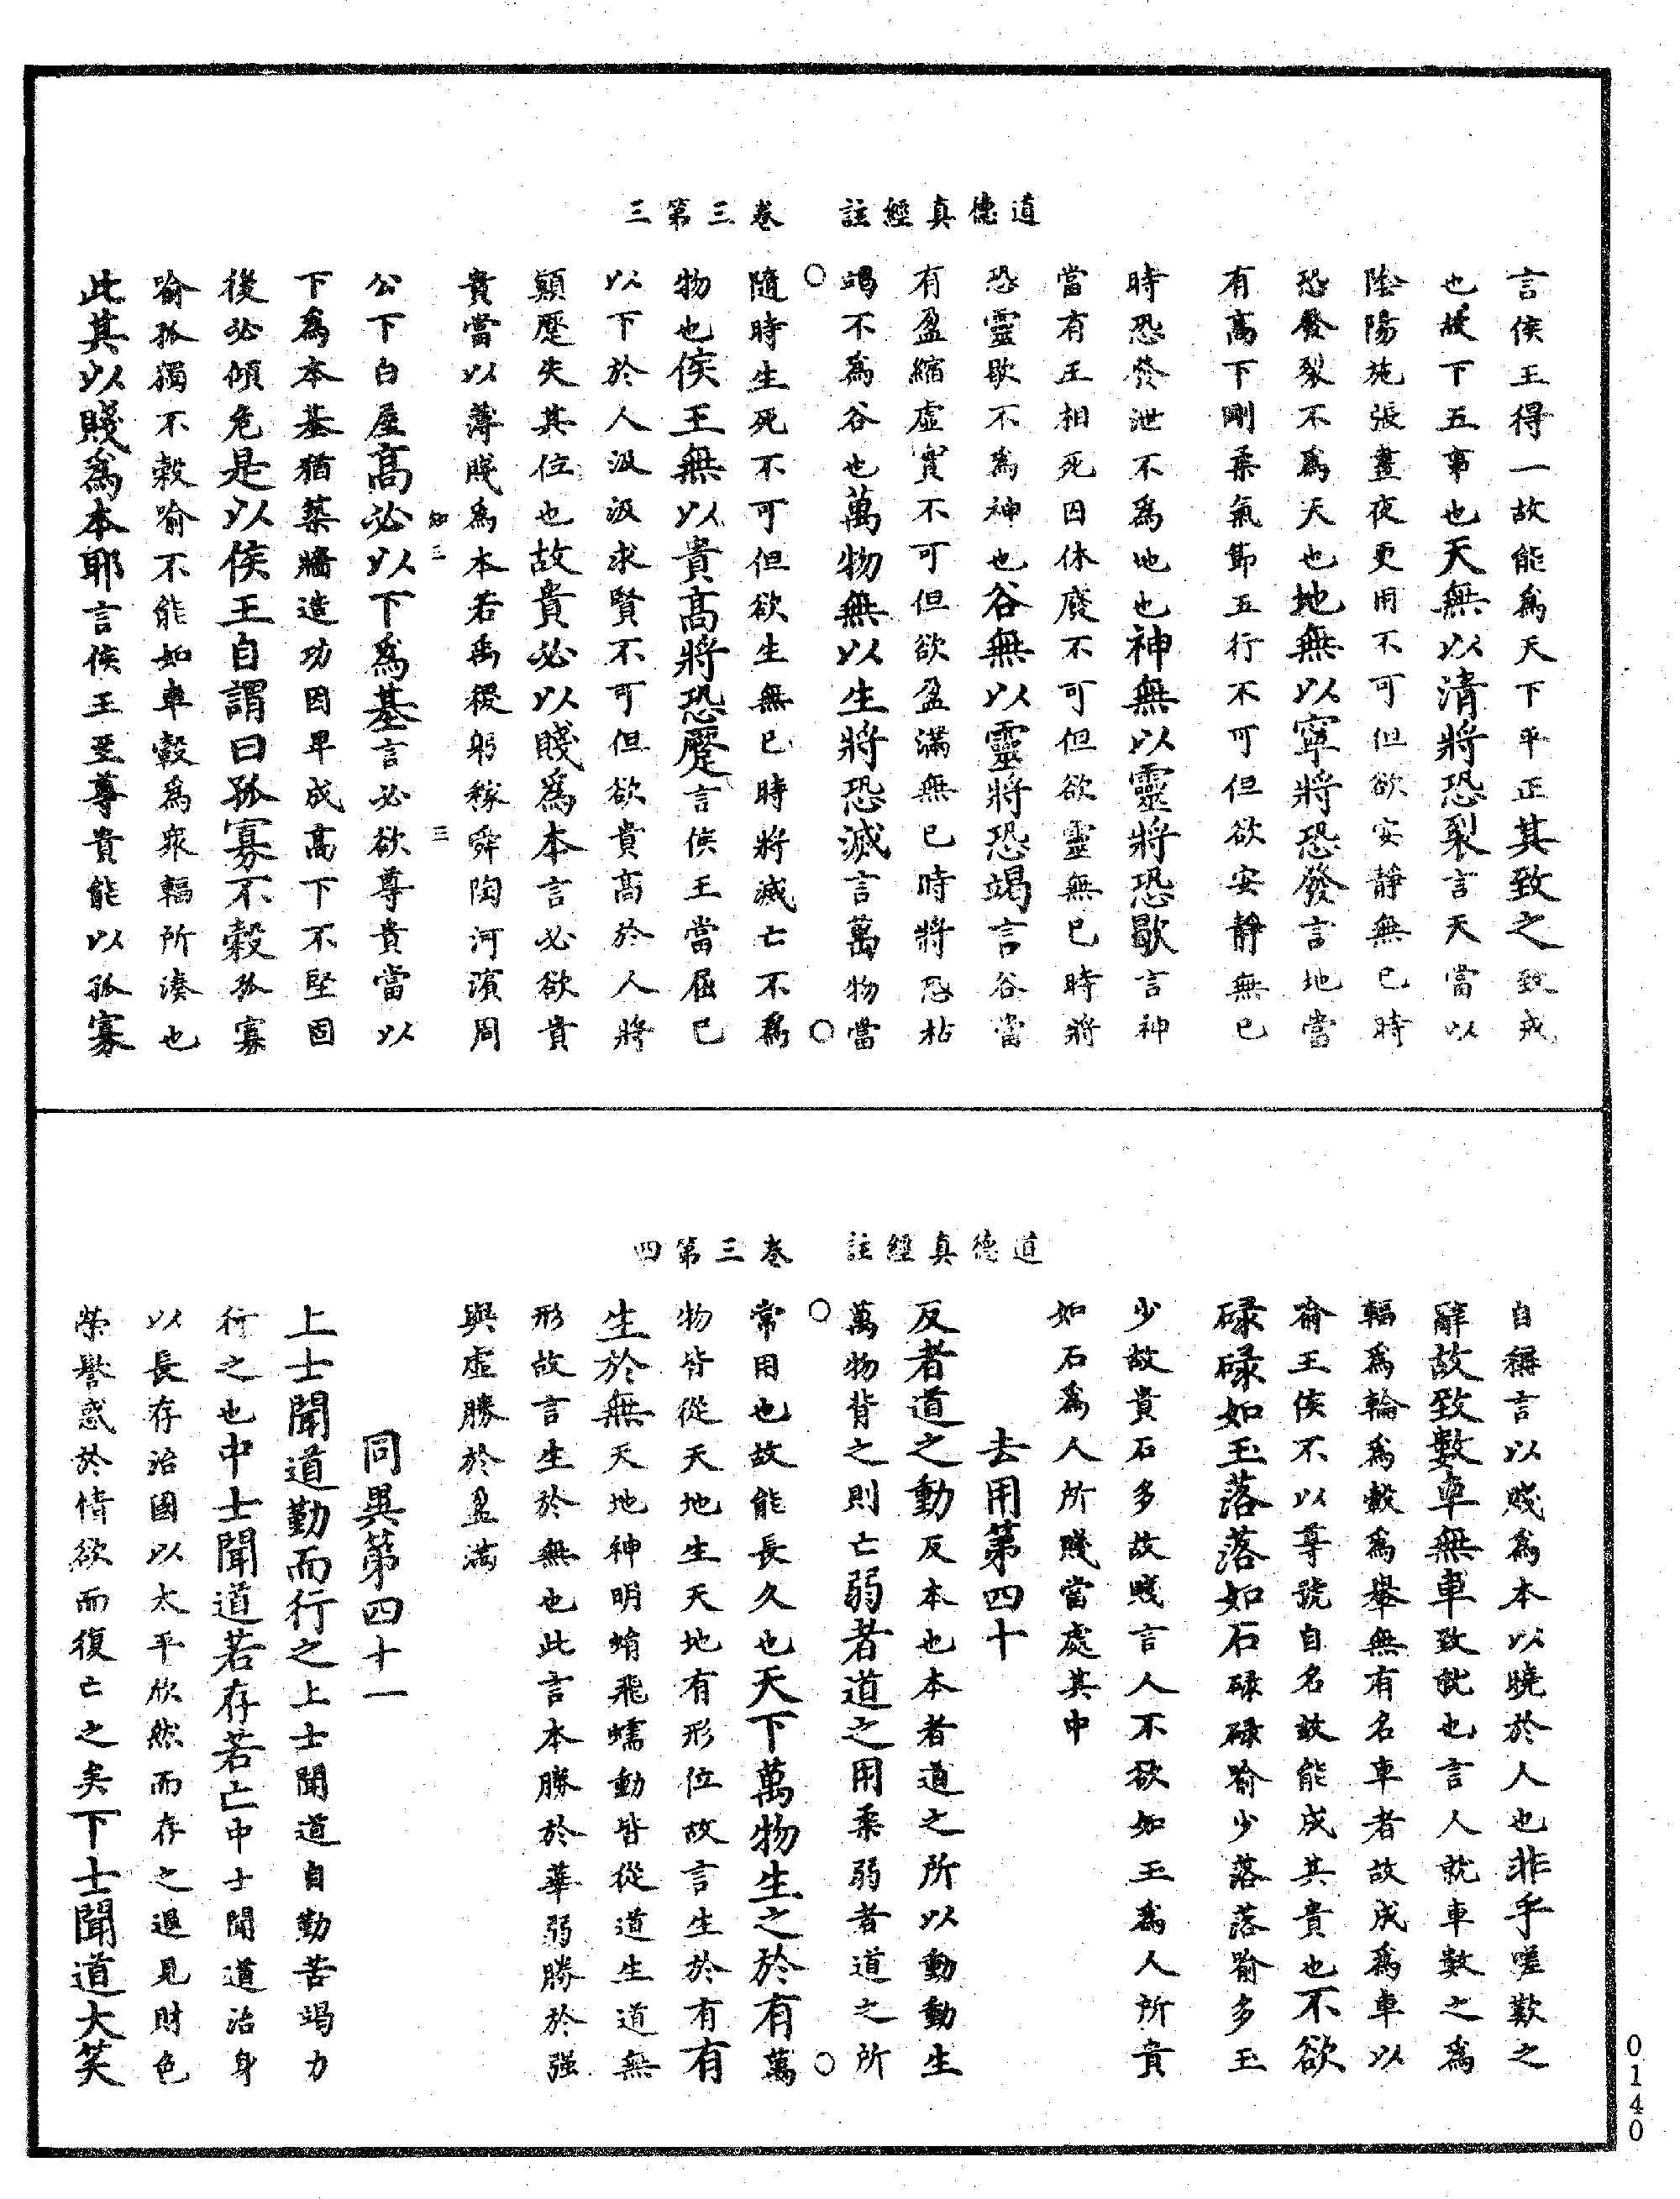 道德真經註　卷三第三
言侯王得一故能爲天下平正其致之致戒
也謂下五事也天無以清將恐裂言天當以
陰陽施張晝夜更用不可但欲安靜無已時
恐發裂不爲天也地無以寧將恐發言地當
有高下剛柔氣節五行不可但欲安靜無已
時恐發泄不爲地也神無以靈將恐歇言神
當有王相死囚休廢不可但欲靈無已時將
恐靈歇不爲神也谷無以靈將恐竭言谷當
有盈縮虛實不可但欲盈滿無已時將恐枯
竭不爲谷也萬物無以生將恐滅言萬物當
隨時生死不可但欲生無已時將滅亡不爲
物也侯王無以貴高將恐蹷言侯王當屈已
以下於人汲汲求賢不可但欲貴高於人將
顛蹷失其位也故貴必以賤爲本言必欲貴
貴當以薄賤爲本若禹稷躬稼舜陶河濱周
公下白屋高必以下爲基言必欲尊貴當以
下爲本基猶築牆造功因卑成高下不堅固
後必傾危是以侯王自謂曰孤寡不穀孤寡
喻孤獨不穀喻不能如車轂爲衆輻所湊也
此其以賤爲本耶言侯王至尊貴能以孤寡
道德真經註　卷三第四
自稱言以賤爲本以曉於人也非乎嗟歎之
辭故致數車無車致就也言人就車數之爲
輻爲輪爲轂爲轝無有名車者故成爲車以
喻王侯不以尊號自名故能成其貴也不欲
碌碌如玉落落如石碌碌喻少落落喻多玉
少故貴石多故賤言人不欲如玉爲人所貴
如石爲人所賤當處其中
去用第四十
反者道之動反本也本者道之所以動動生
萬物背之則亡弱者道之用柔弱者道之所
常用也故能長久也天下萬物生之於有萬
物皆從天地生天地有形位故言生於有有
生於無天地神明蜎飛蠕動皆從道生道無
形故言生於無也此言本勝於華弱勝於强
與虛勝於盈滿
同異第四十一
上士聞道勤而行之上士聞道自勤苦竭力
行之也中士聞道若存若亡中士聞道治身
以長存治國以太平欣然而存之退見財色
榮譽惑於情欲而復亡之矣下士聞道大笑
0140